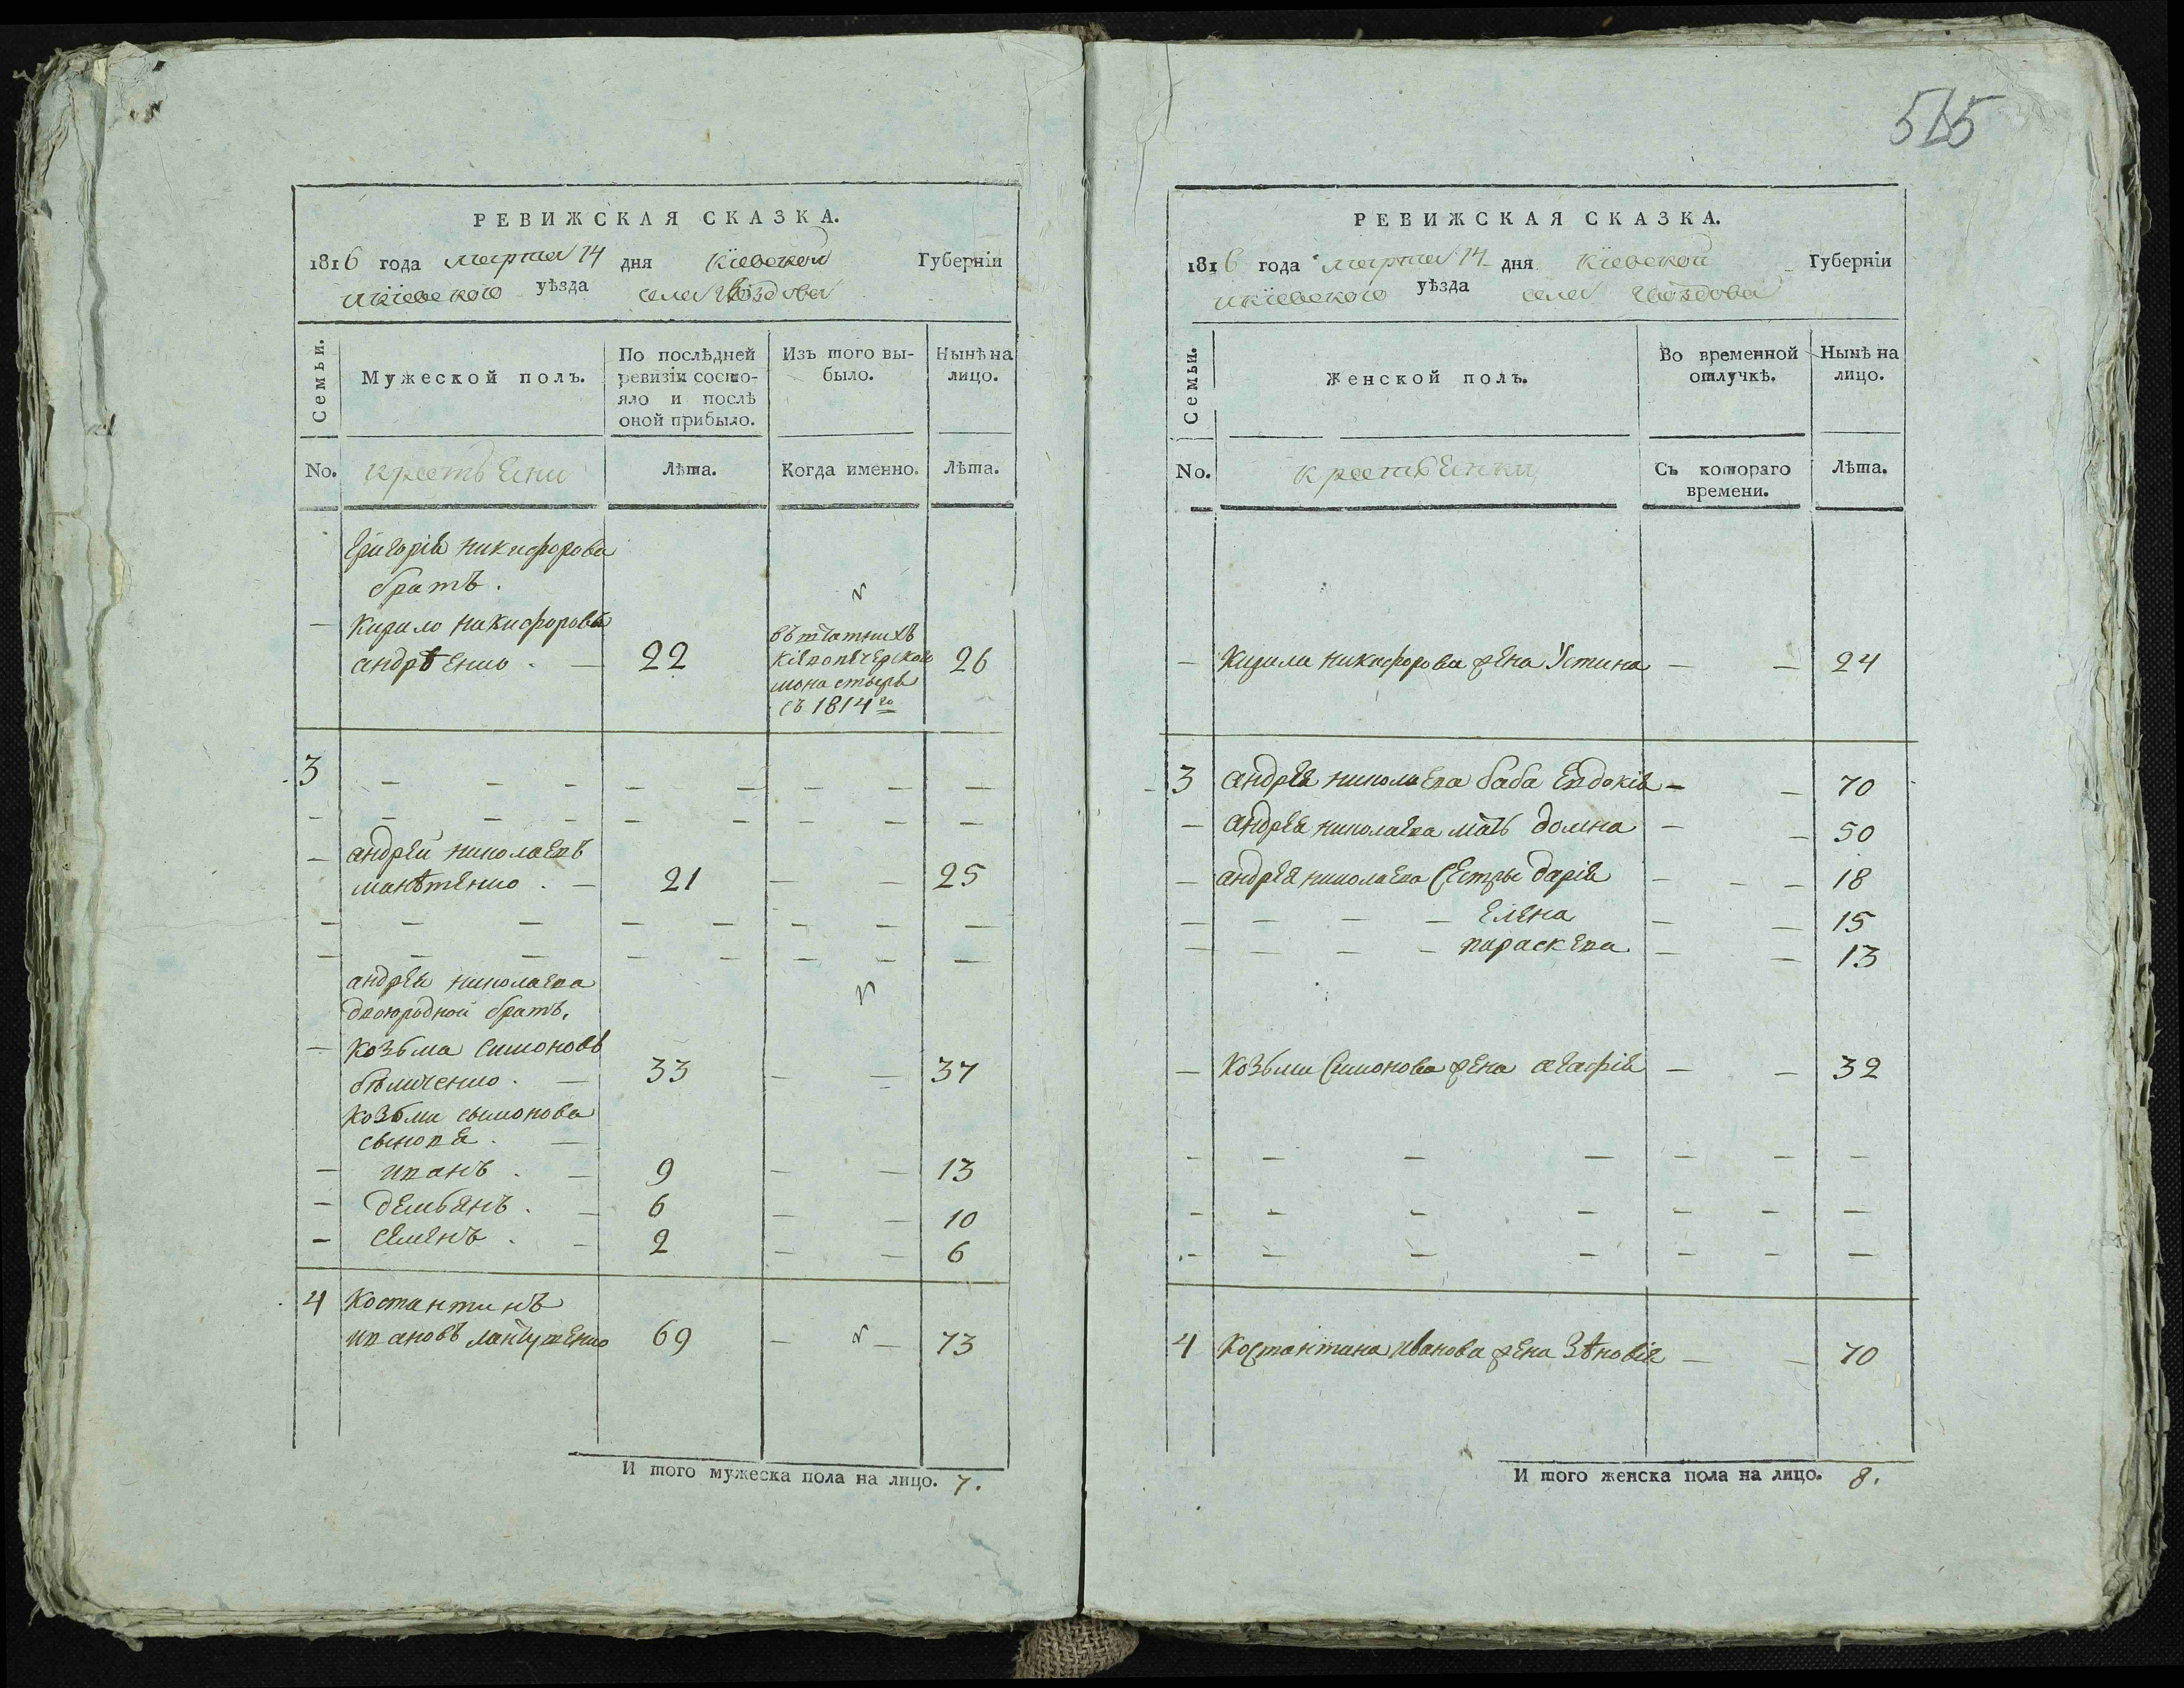 515
РЕВИЖСКАЯ СКАЗКА.
1816 года марта 14 дня Кіевской Губерніи
икіевского уѣзда села Гвоздова
Семьи.
Мужеской полъ.
По послѣдней ревизіи состояло и послѣ оной прибыло.
Изъ того выбыло.
Нынѣ на лицо.
No. крестьяни Лѣта. Когда именно. Лѣта.
Григорія никифорова
братъ.
— Кирило никифоровъ
андрѣенко. — 22 26
въ штатнихъ
Кіевопечерского
монастыря
съ 1814го
3 — — — — — — — —
— — — — — — — — —
— андрей николаевъ
— 21 — — 25
— — — — — — — —
— — — — — — — —
андрея николаева
двоюродной братъ,
— Козьма Симоновъ
бѣличенко. — 33 — — 37
Козьми симонова
сыновя. —
— иванъ. — 9 — — 13
— демьянъ. — 6 — — 10
— семенъ. — 2 — — 6
4 Костантинъ
ивановъ 69 — — 73
И того мужеска пола на лицо. 7.
РЕВИЖСКАЯ СКАЗКА.
1816 года марта 14 дня Кіевской Губерніи
икіевского уѣзда села Гвоздова
Семьи.
Женской полъ.
Во временной отлучкѣ.
Нынѣ на лицо.
No. крестьянки Съ котораго времени. Лѣта.
— Кирила никифорова жена Устина — — 24
3 андрея николаева баба Евдокія — — 70
— андрея николаева мать домна — — 50
— андрея николаева сестры дарія — — — 18
— — — — Елена — — 15
— — — — параскева — — 13
— Козьми Симонова жена агафія — — 32
— — — — — — —
— — — — — — —
— — — — — — —
4 Костантина иванова жена Зѣновія — — 70
И того женска пола на лицо. 8.